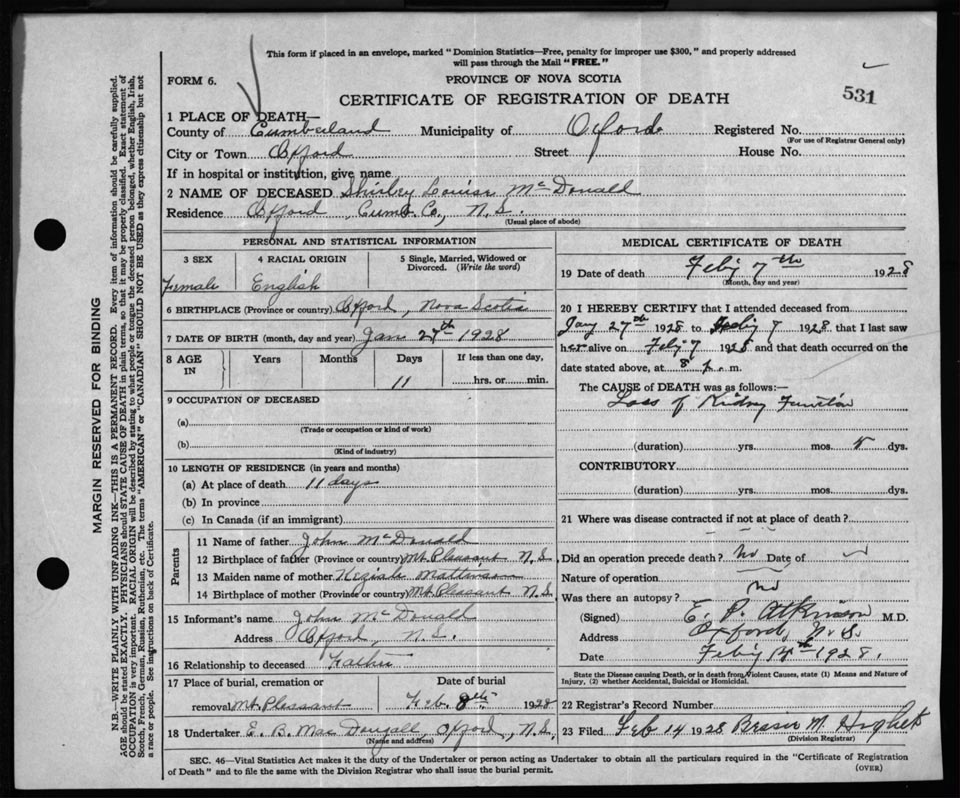 This form if placed in an envelope, marked "Dominion Statistics—Free, penalty for improper use $300," and properly addressed
will pass through the Mail "FREE."
FORM 6.
PROVINCE OF NOVA SCOTIA
531
CERTIFICATE OF REGISTRATION OF DEATH
1 PLACE OF DEATH—
County of Cumberland Municipality of Oxford Registered No.
(For use of Registrar General only)
City or Town Oxford Street House No.
If in hospital or institution, give name
2 NAME OF DECEASED Shirley Louise McDonald
Residence Oxford, Cumb. Co., N.S.
(Usual place of abode)
PERSONAL AND STATISTICAL INFORMATION
3 SEX 4 RACIAL ORIGIN 5 Single, Married, Widowed or
Divorced. (Write the word)
Female English
6 BIRTHPLACE (Province or country) Oxford, Nova Scotia
7 DATE OF BIRTH (month, day and year) Jan 27th 1928
8 AGE Years Months Days If less than one day,
IN 11 hrs. or min.
9 OCCUPATION OF DECEASED
(a)
(Trade or occupation or kind of work)
(b)
(Kind of industry)
10 LENGTH OF RESIDENCE (in years and months)
(a) At place of death 11 days
(b) In province
(c) In Canada (if an immigrant)
Parents
11 Name of father John McDonald
12 Birthplace of father (Province or country) Mt. Pleasant N.S.
13 Maiden name of mother Keziah Mattinson
14 Birthplace of mother (Province or country) Mt. Pleasant N.S.
15 Informant's name John McDonald
Address Oxford, N.S.
16 Relationship to deceased Father
17 Place of burial, cremation or Date of burial
removal Mt. Pleasant Feb. 8th 1928
18 Undertaker E. B. MacDougall, Oxford, N.S.
(Name and address)
MEDICAL CERTIFICATE OF DEATH
19 Date of death Feby 7th 1928
(Month, day and year)
20 I HEREBY CERTIFY that I attended deceased from
Jany 27th 1928 to Feby 7 1928 that I last saw
her alive on Feby 7 1928 and that death occurred on the
date stated above, at 8 p. m.
The CAUSE of DEATH was as follows:—
Loss of Kidney Function
(duration) yrs. mos. dys.
CONTRIBUTORY
(duration) yrs. mos. dys.
21 Where was disease contracted if not at place of death?
Did an operation precede death? No Date of
Nature of operation
Was there an autopsy? No
(Signed) E. P. Atkinson M.D.
Address Oxford, N.S.
Date Feby 14th 1928.
State the Disease causing Death, or in death from Violent Causes, state (1) Means and Nature of
Injury, (2) whether Accidental, Suicidal or Homicidal.
22 Registrar's Record Number
23 Filed Feb 14 1928 Bessie M. Hughes
(Division Registrar)
SEC. 46—Vital Statistics Act makes it the duty of the Undertaker or person acting as Undertaker to obtain all the particulars required in the "Certificate of Registration
of Death" and to file the same with the Division Registrar who shall issue the burial permit.
(OVER)
MARGIN RESERVED FOR BINDING
N.B.—WRITE PLAINLY WITH UNFADING INK—THIS IS A PERMANENT RECORD. Every item of information should be carefully supplied.
AGE should be stated EXACTLY. PHYSICIANS should STATE CAUSE OF DEATH in plain terms, so that it may be properly classified. Exact statement of
OCCUPATION is very important. RACIAL ORIGIN will be described by stating to what people or tongue the deceased person belonged, whether English, Irish,
Scotch, French, German, Russian, Ruthenian, etc. The terms "AMERICAN" or "CANADIAN" SHOULD NOT BE USED as they express citizenship but not
a race or people. See instructions on back of Certificate.